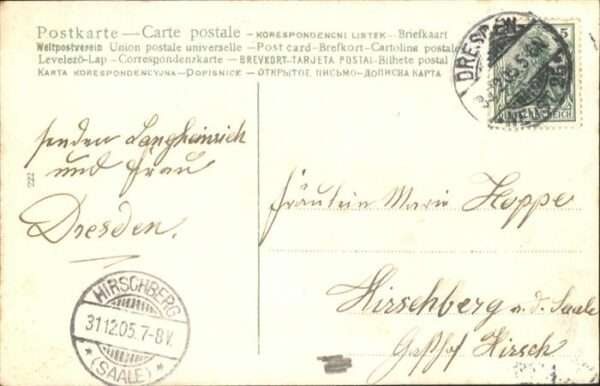 Postkarte — Carte postale - KORESPONDENCNI LISTEK - Briefkaart
Weltpostverein Union postale universelle - Post card - Brefkort - Cartolina postale
Levelező-Lap - Correspondenzkarte - BREVKORT - TARJETA POSTAL - Bilhete postal
KARTA KORESPONDENCYJNA - DOPISNICE - ОТКРЫТОЕ ПИСЬМО - ДОПИСНА КАРТА
DRESDEN
5
REICH
senden Langheinrich
und Frau
Dresden.
222
Fräulein Marie Hoppe
Hirschberg a. d. Saale
Gasthof Hirsch
HIRSCHBERG
31.12.05. 7-8 V.
* (SAALE) *